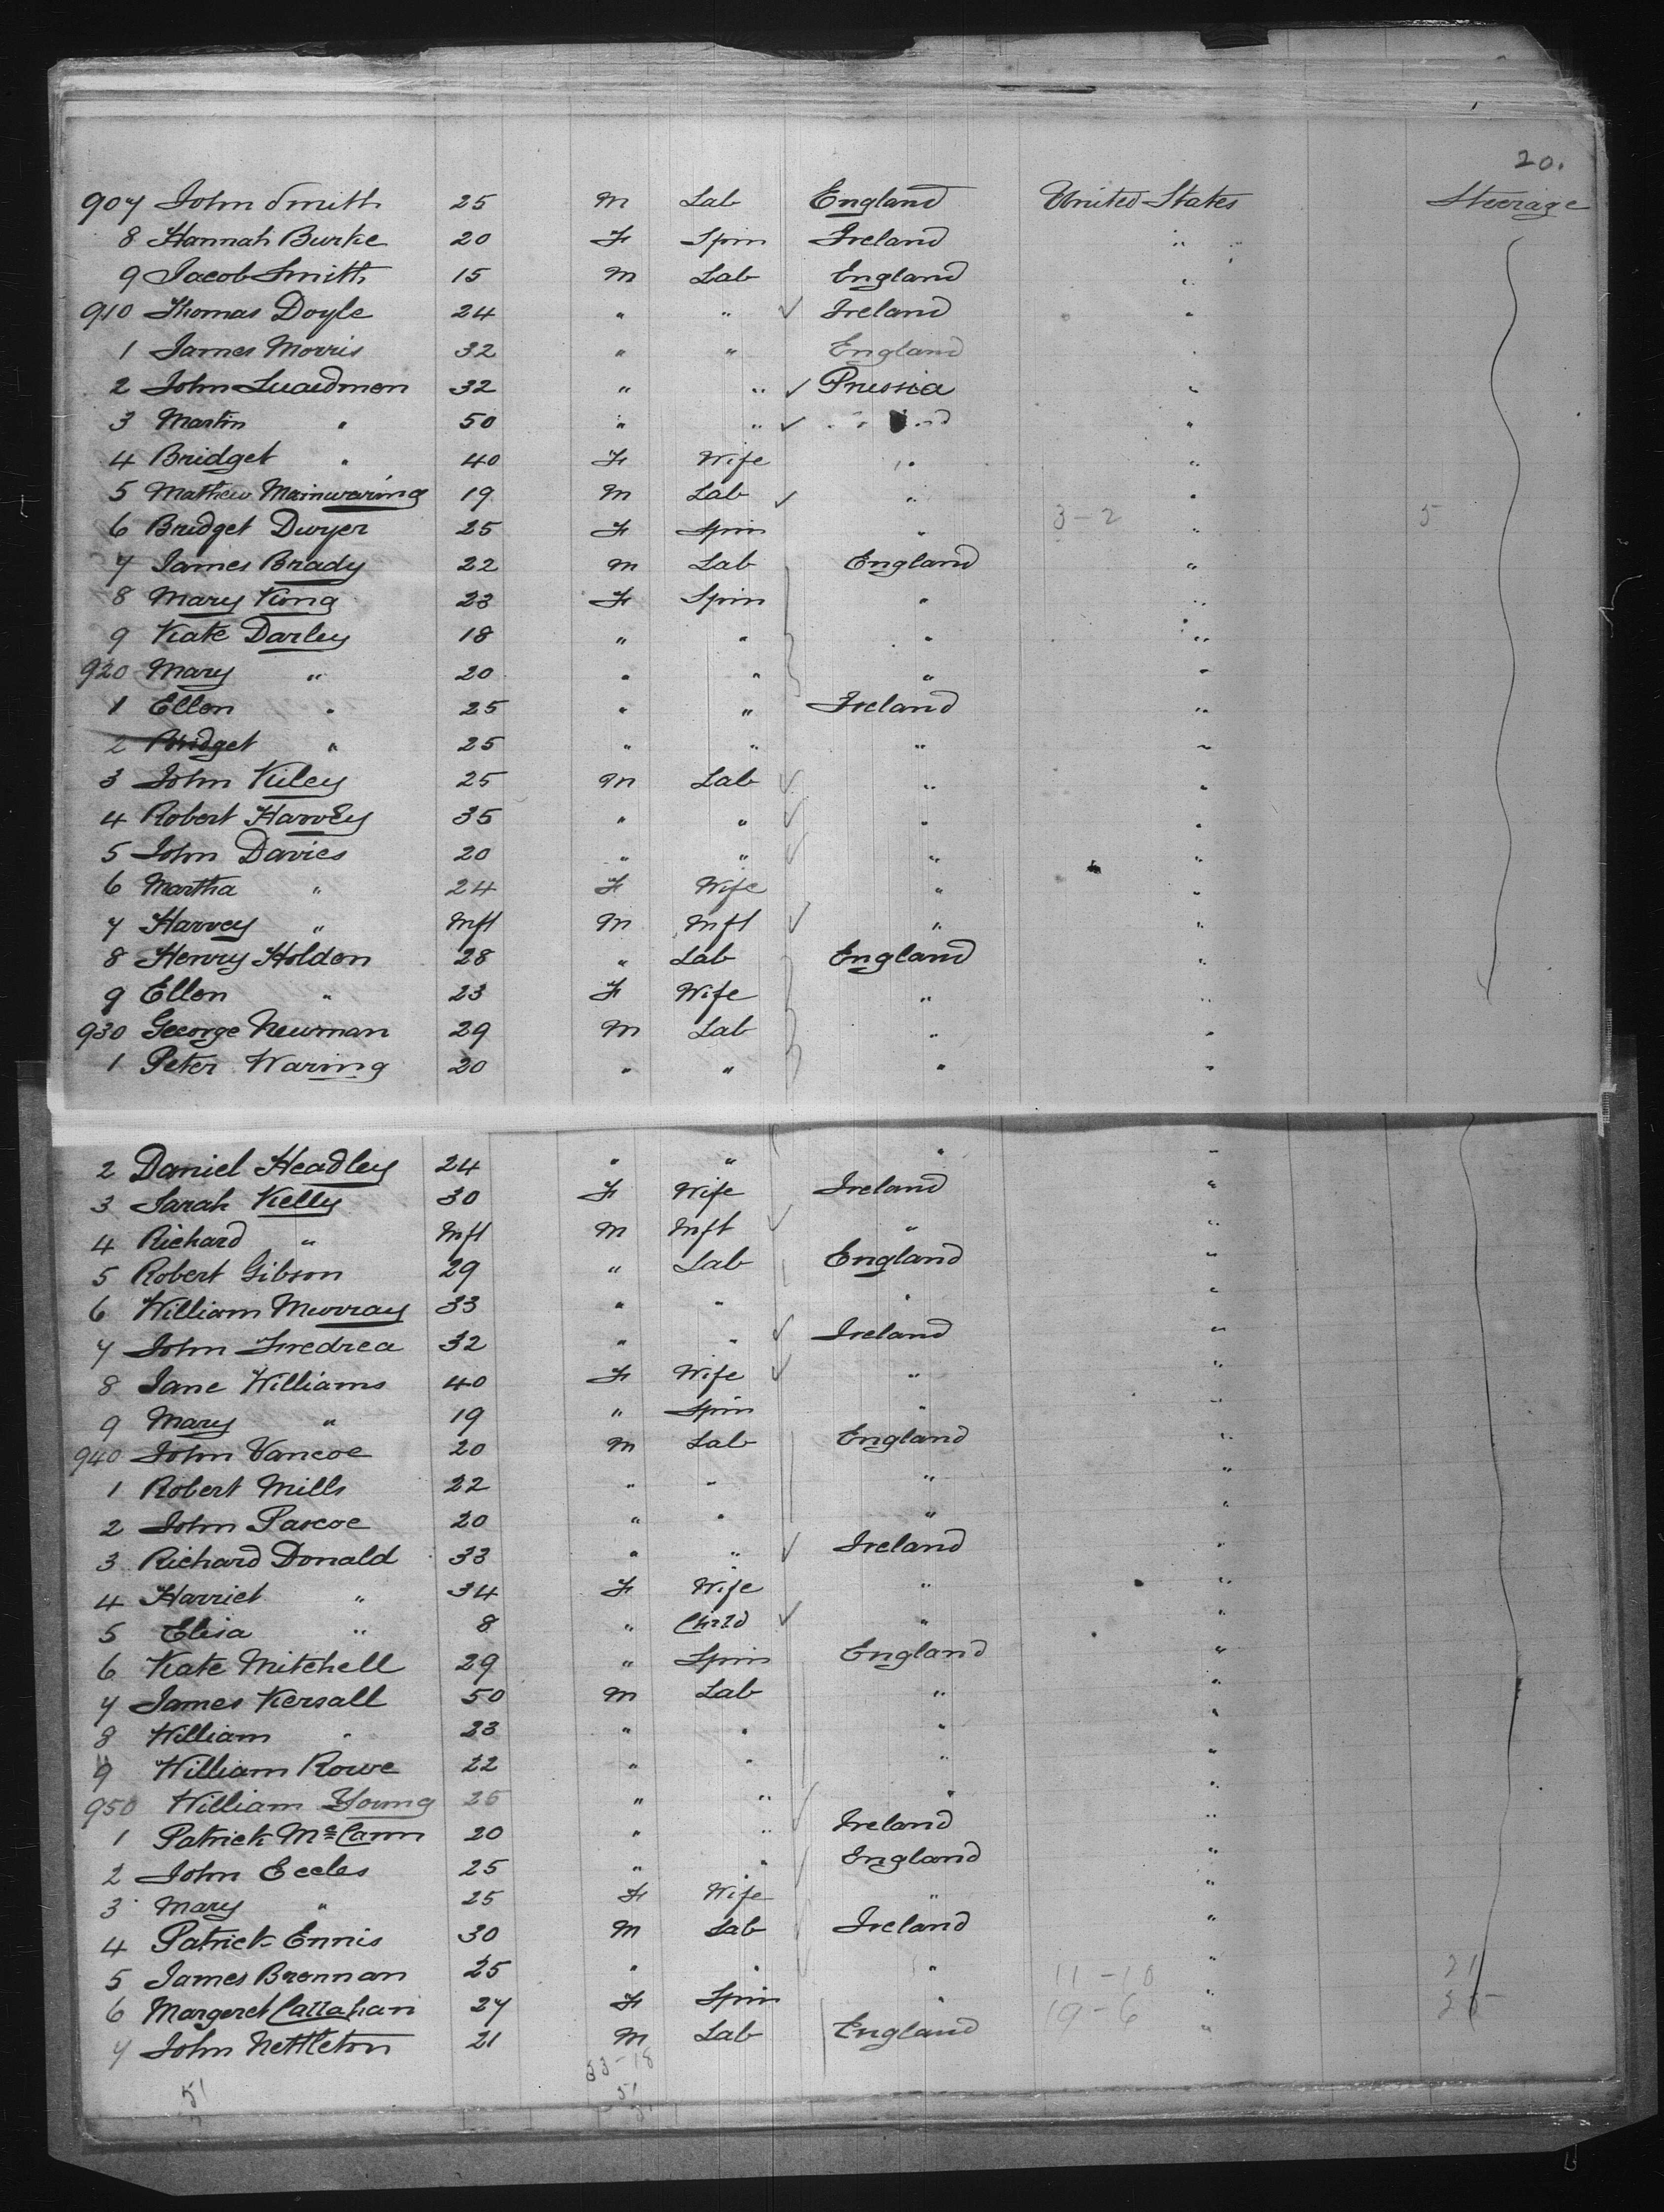 20.
907 John Smith 25 M Lab England United States Steerage
8 Hannah Burke 20 F Spin Ireland " "
9 Jacob Smith 15 M Lab England "
910 Thomas Doyle 24 " " ✓ Ireland "
1 James Morris 32 " " England "
2 John Luaedmon 32 " " ✓ Prussia "
3 Martin " 50 " " ✓ "
4 Bridget " 40 F Wife " "
5 Mathew Mainwaring 19 M Lab ✓ " "
6 Bridget Dwyer 25 F Spin " 3-2 " 5
7 James Brady 22 M Lab England "
8 Mary King 23 F Spin " "
9 Kate Darley 18 " " " "
920 Mary " 20 " " " "
1 Ellen " 25 " " Ireland "
2 Bridget " 25 " " " "
3 John Kiley 25 M Lab ✓ " "
4 Robert Harvey 35 " " ✓ " "
5 John Davies 20 " " ✓ " "
6 Martha " 24 F Wife " "
7 Harvey " Inft M Inft ✓ " "
8 Henry Holden 28 " Lab England "
9 Ellen " 23 F Wife " "
930 George Newman 29 M Lab " "
1 Peter Waring 20 " " " "
2 Daniel Headley 24 " " " "
3 Sarah Kelly 30 F Wife Ireland "
4 Richard " Inft M Inft ✓ " "
5 Robert Gibson 29 " Lab England "
6 William Murray 33 " " " "
7 John Fredrea 32 " " ✓ Ireland "
8 Jane Williams 40 F Wife ✓ " "
9 Mary " 19 " Spin " "
940 John Vancoe 20 M Lab England "
1 Robert Mills 22 " " " "
2 John Pascoe 20 " " " "
3 Richard Donald 33 " " ✓ Ireland "
4 Harriet " 34 F Wife " "
5 Elisa " 8 " Child ✓ " "
6 Kate Mitchell 29 " Spin England "
7 James Kersall 50 M Lab " "
8 William " 23 " " " "
9 William Rowe 22 " " " "
950 William Young 25 " " " "
1 Patrick McCann 20 " " ✓ Ireland "
2 John Eccles 25 " " England "
3 Mary " 25 F Wife " "
4 Patrick Ennis 30 M Lab Ireland "
5 James Brennan 25 " " " 11-10 " 21
6 Margeret Callahan 27 F Spin " 19-6 "
7 John Nettleton 21 M Lab England "
33-18
51 51